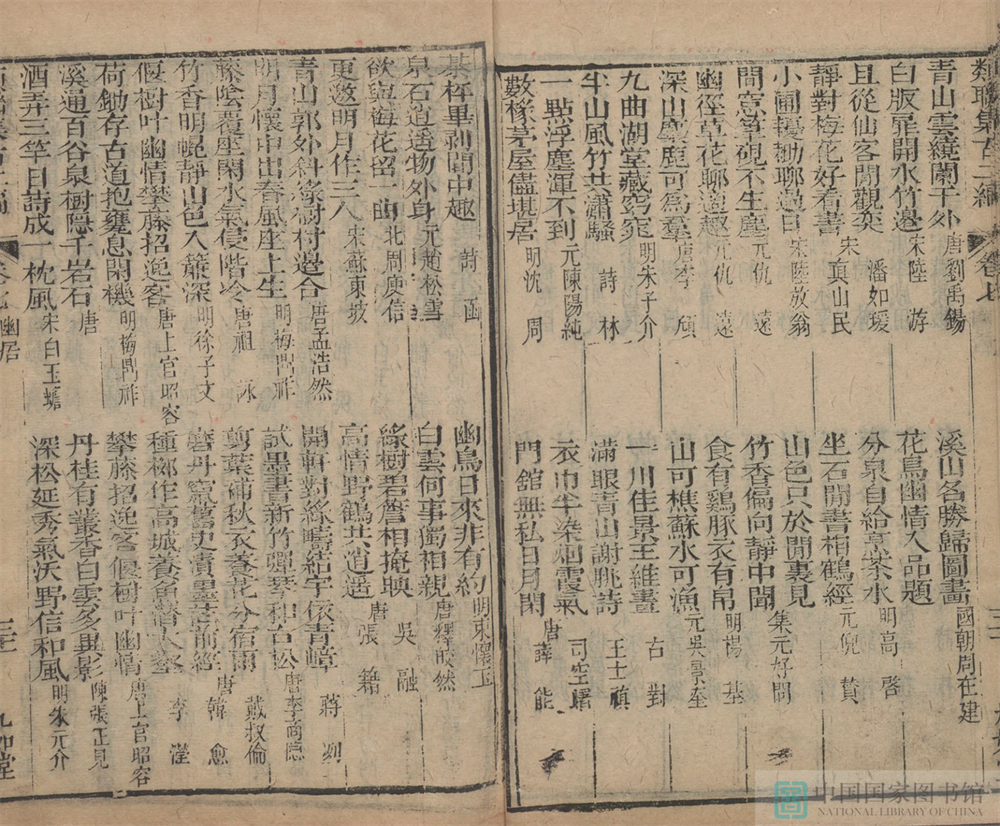 類聯集古二編
卷七
青山雲繞闌干外 唐劉禹錫
溪山名勝歸圖畫 國朝周在建
白版扉開水竹邊 宋陸 游
花鳥幽情入品題
且從仙客閒觀奕 潘如瑗
分泉自給烹茶水 明高 啓
靜對梅花好看書 宋真山民
坐石閒書相鶴經 元倪 瓚
小圃擾鋤聊過日 宋陸放翁
山色只於閒裏見
閒窓筆硯不生塵 元仇 遠
竹香偏向靜中聞 集元好問
幽徑草花聊適趣 元仇 遠
食有鷄豚衣有帛 明楊 基
深山麋鹿可為羣 唐李 頎
山可樵蘇水可漁 元吳景奎
九曲湖堂藏窈窕 明朱子介
一川佳景王維畫 右 對
半山風竹共瀟騷 詩 林
滿眼青山謝朓詩 王士禛
一點浮塵渾不到 元陳陽純
衣巾半染烟霞氣 司空曙
數椽茅屋儘堪居 明沈 周
門館無私日月閑 唐薛 能
棊枰畢剥閒中趣 詩 函
幽鳥日來非有約 明束懷玉
泉石逍遙物外身 元趙松雪
白雲何事獨相親 唐釋皎然
欲與梅花留一曲 北周庾信
綠樹碧簷相掩映 吳 融
更邀明月作三人 宋蘇東坡
高情野鶴共逍遥 唐張 籍
青山郭外斜綠樹村邊合 唐孟浩然
開軒對綠疇結宇依青嶂 蔣 冽
明月懷中出春風座上生 明梅鼎祚
試墨書新竹彈琴和古松 唐李商隱
藤陰覆座閑水氣侵階冷 唐祖 詠
剪葉補秋衣養花分宿雨 戴叔倫
竹香明晚靜山色入簾深 明徐子文
磨丹窺舊史漬墨𦵏前經 唐韓 愈
偃樹叶幽情攀藤招逸客 唐上官昭容
種柳作高城養魚潛大壑 李 瀅
荷鋤存古道抱甕息閑機 明梅鼎祚
攀藤招逸客偃樹叶幽情 唐上官昭容
溪通百谷泉樹隱千岩石 唐
丹桂有叢香白雲多異影 陳張正見
酒弄三竿日詩成一枕風 宋白玉蟾
深松延秀氣沃野信和風 明朱元介
幽居
三二
九如堂
中国国家图书馆
NATIONAL LIBRARY OF CHINA